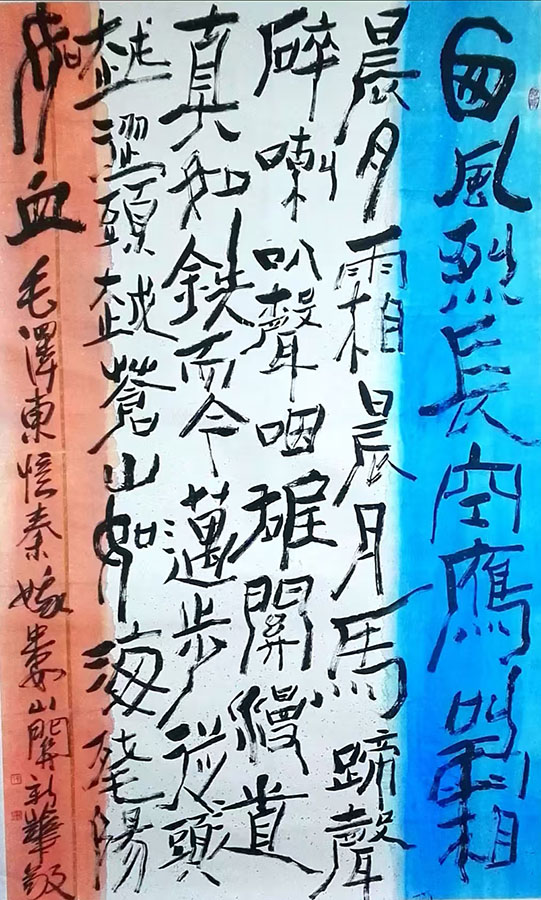 西風烈長空鴈叫霜
晨月霜晨月馬蹄聲
碎喇叭聲咽雄關漫道
真如鐵而今邁步從頭
越從頭越蒼山如海殘陽
如血 毛澤東憶秦娥婁山關新華